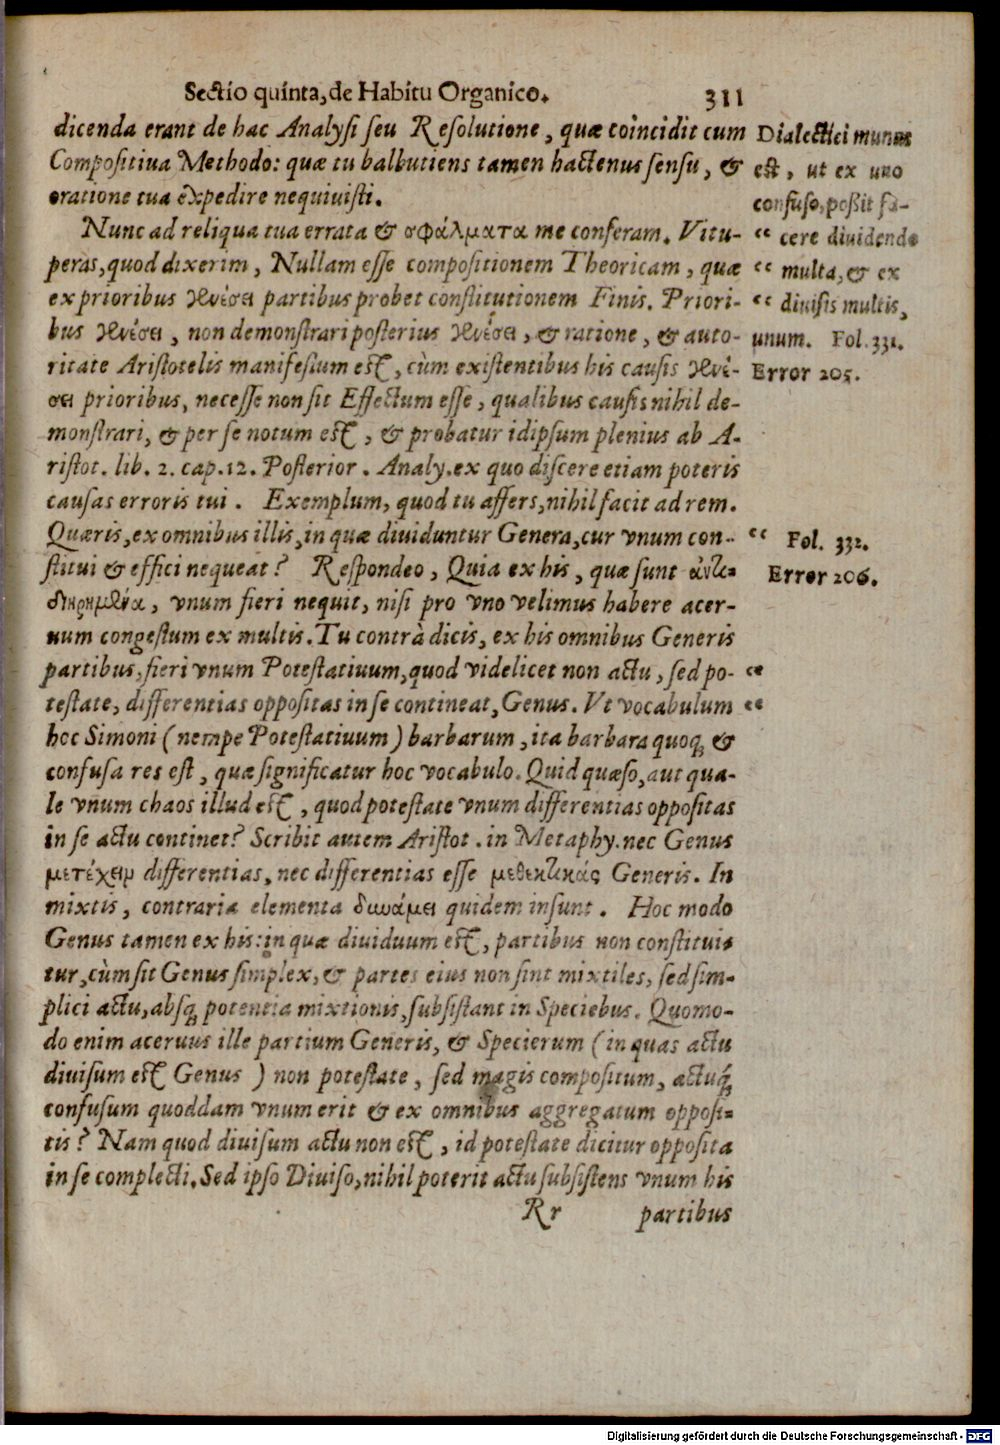 Sectio quinta, de Habitu Organico. 311
dicenda erant de hac Analysi seu Resolutione, quæ coincidit cum
Compositiua Methodo: quæ tu balbutiens tamen hactenus sensu, &
oratione tua expedire nequiuisti.
Nunc ad reliqua tua errata & σφάλματα me conferam. Vitu-
peras, quod dixerim, Nullam esse compositionem Theoricam, quæ
ex prioribus γενέσει partibus probet constitutionem Finis. Priori-
bus γενέσει, non demonstrari posterius γενέσει, & ratione, & auto-
ritate Aristotelis manifestum est, cùm existentibus his causis γενέ-
σει prioribus, necesse non sit Effectum esse, qualibus causis nihil de-
monstrari, & per se notum est, & probatur id ipsum plenius ab A-
ristot. lib. 2. cap. 12. Posterior. Analy. ex quo discere etiam poteris
causas erroris tui. Exemplum, quod tu affers, nihil facit ad rem.
Quæris, ex omnibus illis, in quæ diuiduntur Genera, cur vnum con-
stitui & effici nequeat? Respondeo, Quia ex his, quæ sunt ἀντι-
διῃρημένα, vnum fieri nequit, nisi pro vno velimus habere acer-
uum congestum ex multis. Tu contrà dicis, ex his omnibus Generis
partibus, fieri vnum Potestatiuum, quod videlicet non actu, sed po-
testate, differentias oppositas in se contineat, Genus. Vt vocabulum
hoc Simoni (nempe Potestatiuum) barbarum, ita barbara quoq; &
confusa res est, quæ significatur hoc vocabulo. Quid quæso, aut qua-
le vnum chaos illud est, quod potestate vnum differentias oppositas
in se actu continet? Scribit autem Aristot. in Metaphy. nec Genus
μετέχειν differentias, nec differentias esse μεθεκτικὰς Generis. In
mixtis, contraria elementa δυνάμει quidem insunt. Hoc modo
Genus tamen ex his: in quæ diuiduum est, partibus non constitui-
tur, cùm sit Genus simplex, & partes eius non sint mixtiles, sed sim-
plici actu, absq; potentia mixtionis, subsistant in Speciebus. Quomo-
do enim aceruus ille partium Generis, & Specierum (in quas actu
diuisum est Genus) non potestate, sed magis compositum, actuq;
confusum quoddam vnum erit & ex omnibus aggregatum opposi-
tis? Nam quod diuisum actu non est, id potestate dicitur opposita
in se complecti. Sed ipso Diuiso, nihil poterit actu subsistens vnum his
Rr partibus
Dialectici munus
est, ut ex uno
confuso, poßit fa-
“ cere diuidendo
“ multa, & ex
“ diuisis multis,
unum. Fol. 331.
Error 205.
“ Fol. 332.
Error 206.
“
“
Digitalisierung gefördert durch die Deutsche Forschungsgemeinschaft - DFG